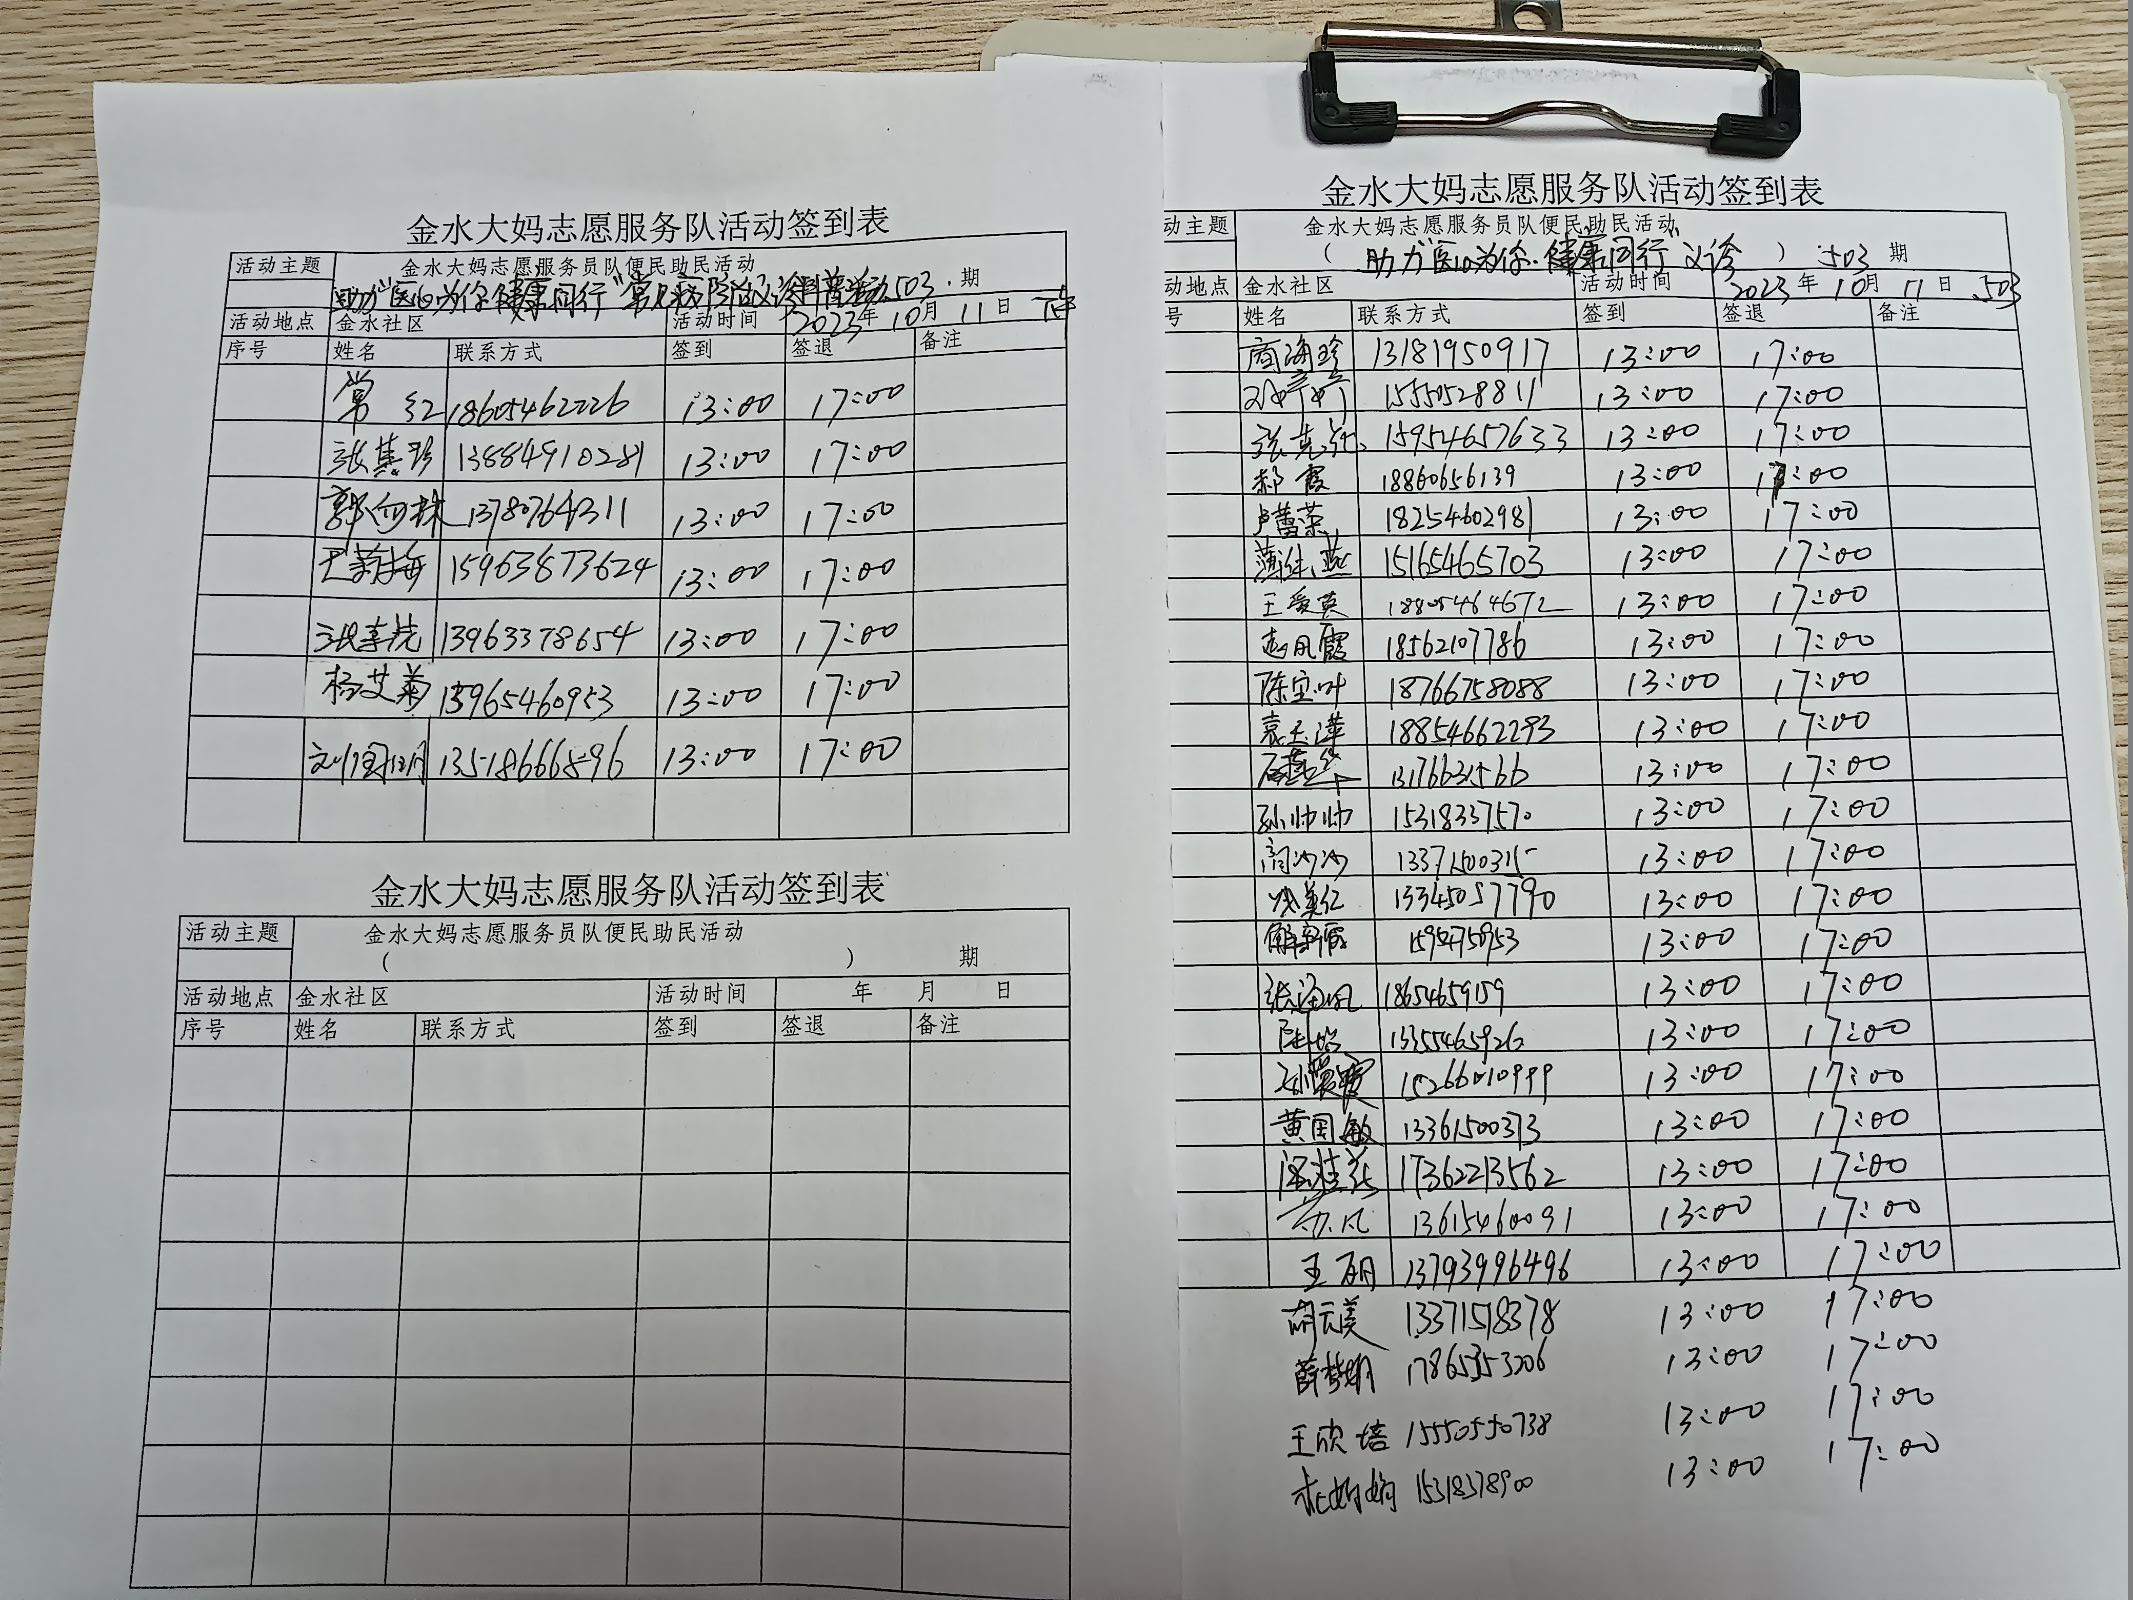 金水大妈志愿服务队活动签到表
活动主题 金水大妈志愿服务员队便民助民活动
助力"医心为你健康同行" 503 期
活动地点 金水社区 活动时间 2023年 10月 11日
序号 姓名 联系方式 签到 签退 备注
常红 18605462226 13:00 17:00
张集珍 13884910281 13:00 17:00
13780764311 13:00 17:00
15963873624 13:00 17:00
13963378654 13:00 17:00
杨艾菊 15965460953 13:00 17:00
13518666896 13:00 17:00
金水大妈志愿服务队活动签到表
活动主题 金水大妈志愿服务员队便民助民活动
( ) 期
活动地点 金水社区 活动时间 年 月 日
序号 姓名 联系方式 签到 签退 备注
金水大妈志愿服务队活动签到表
动主题 金水大妈志愿服务员队便民助民活动
( 助力"医心为你·健康同行"义诊 ) 503 期
动地点 金水社区 活动时间 2023年 10月 11日 503
号 姓名 联系方式 签到 签退 备注
商海珍 13181950917 13:00 17:00
15550528811 13:00 17:00
15954657633 13:00 17:00
郝霞 18860656139 13:00 17:00
卢蕾荣 18254602981 13:00 17:00
薄佳燕 15165465703 13:00 17:00
王爱英 18805464672 13:00 17:00
赵凤霞 18562107786 13:00 17:00
陈宝叶 18766758088 13:00 17:00
袁玉萍 18854662293 13:00 17:00
13176631566 13:00 17:00
孙帅帅 15318337570 13:00 17:00
闫沙沙 13371500315 13:00 17:00
13345057790 13:00 17:00
13:00 17:00
张海凤 18654659159 13:00 17:00
13355465926 13:00 17:00
15266010999 13:00 17:00
黄国敏 13361500373 13:00 17:00
17362213562 13:00 17:00
苏凡 13615460091 13:00 17:00
王丽 13793996496 13:00 17:00
胡云美 13371518378 13:00 17:00
薛梦娟 17865353206 13:00 17:00
王欣培 15550550738 13:00 17:00
15318378900 13:00 17:00